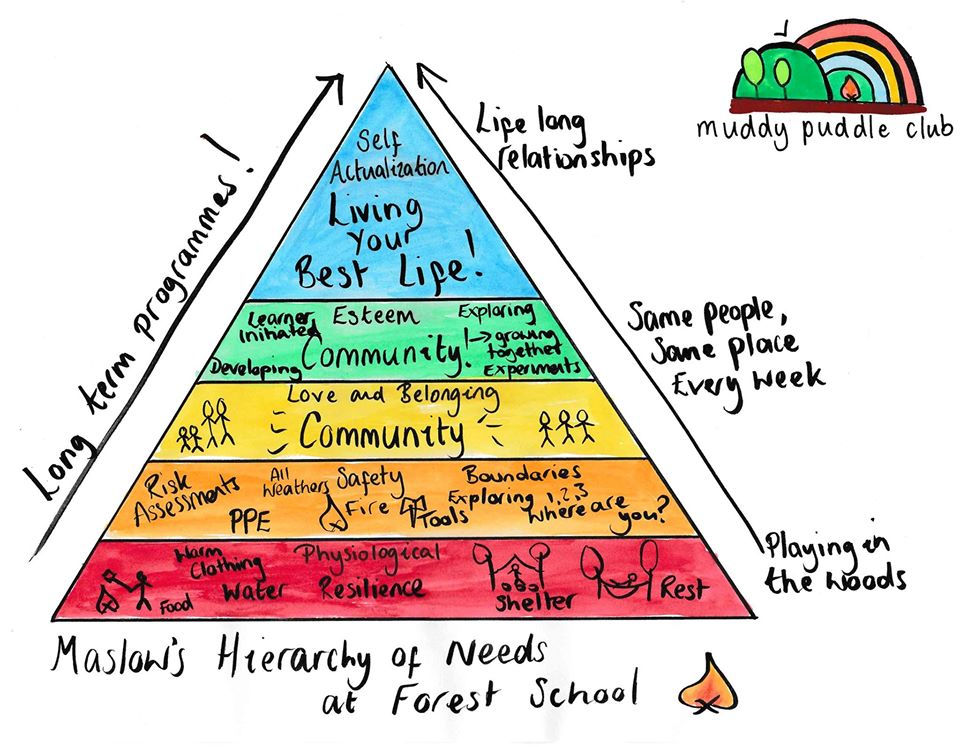 muddy puddle club
Long term programmes!
Life long
relationships
Same people,
Same place
Every week
Playing in
the woods
Self
Actualization
Living
your
Best Life!
Learner
Initiated
Esteem
Exploring
Developing
Community!
→ growing
together
Experiments
Love and Belonging
Community
Risk
Assessments
All
Weathers
Safety
Boundaries
PPE
Fire
Tools
Exploring
1,2,3
where are
you?
Warm
Clothing
Physiological
Food
Water
Resilience
Shelter
Rest
Maslow's Hierarchy of Needs
at Forest School